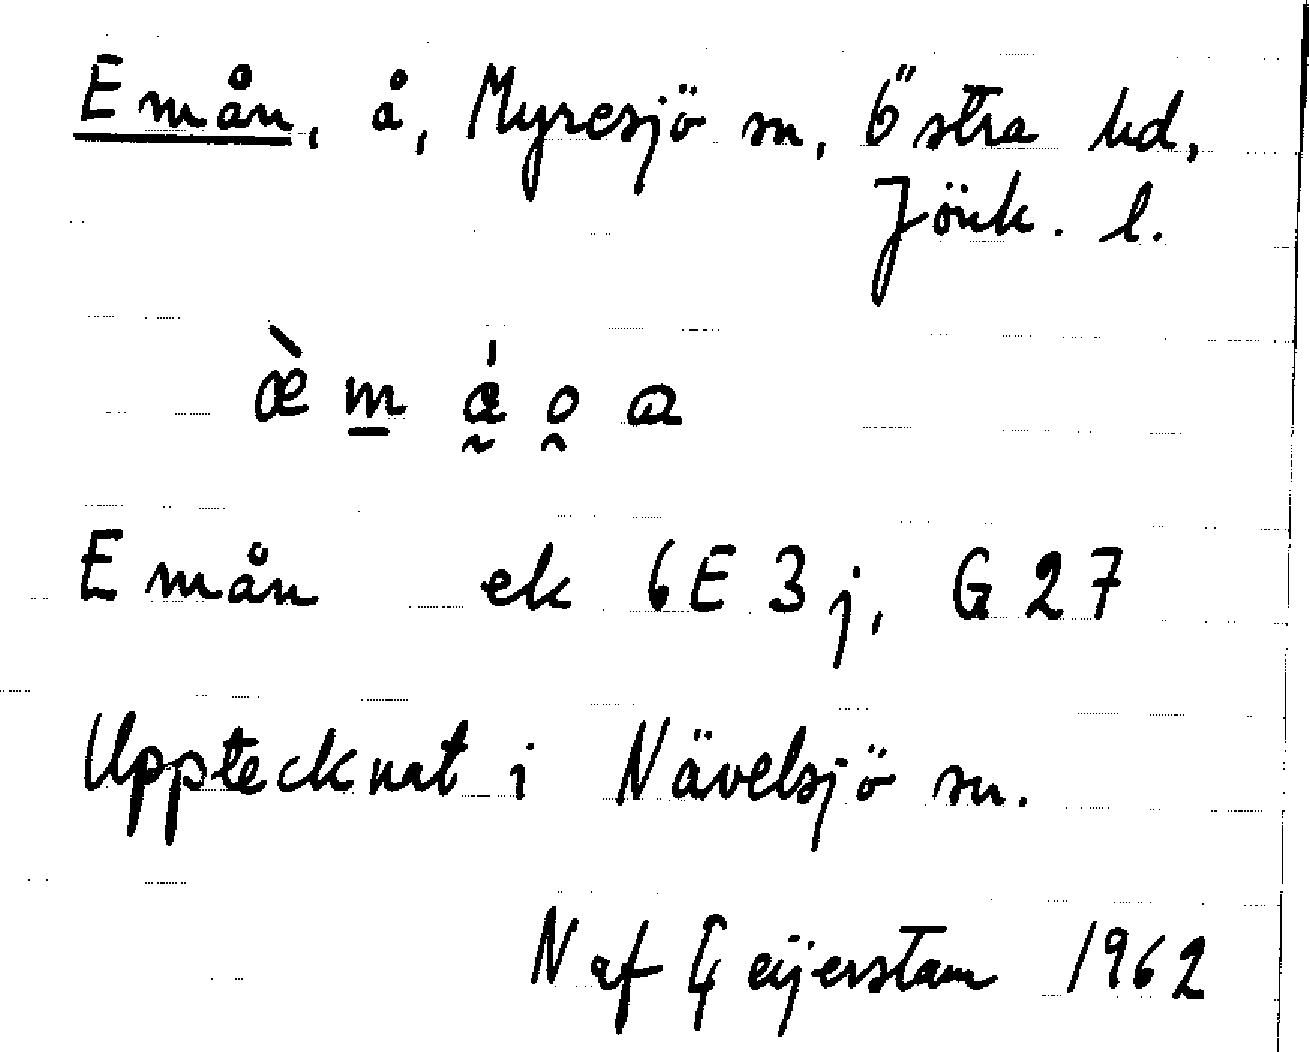 Emån, å, Myresjö sn, Östra hd,
Jönk. l.
æ̀ m̲ á̰ o̯ a
Emån ek 6E3j, G27
Upptecknat i Nävelsjö sn.
N af Geijerstam 1962